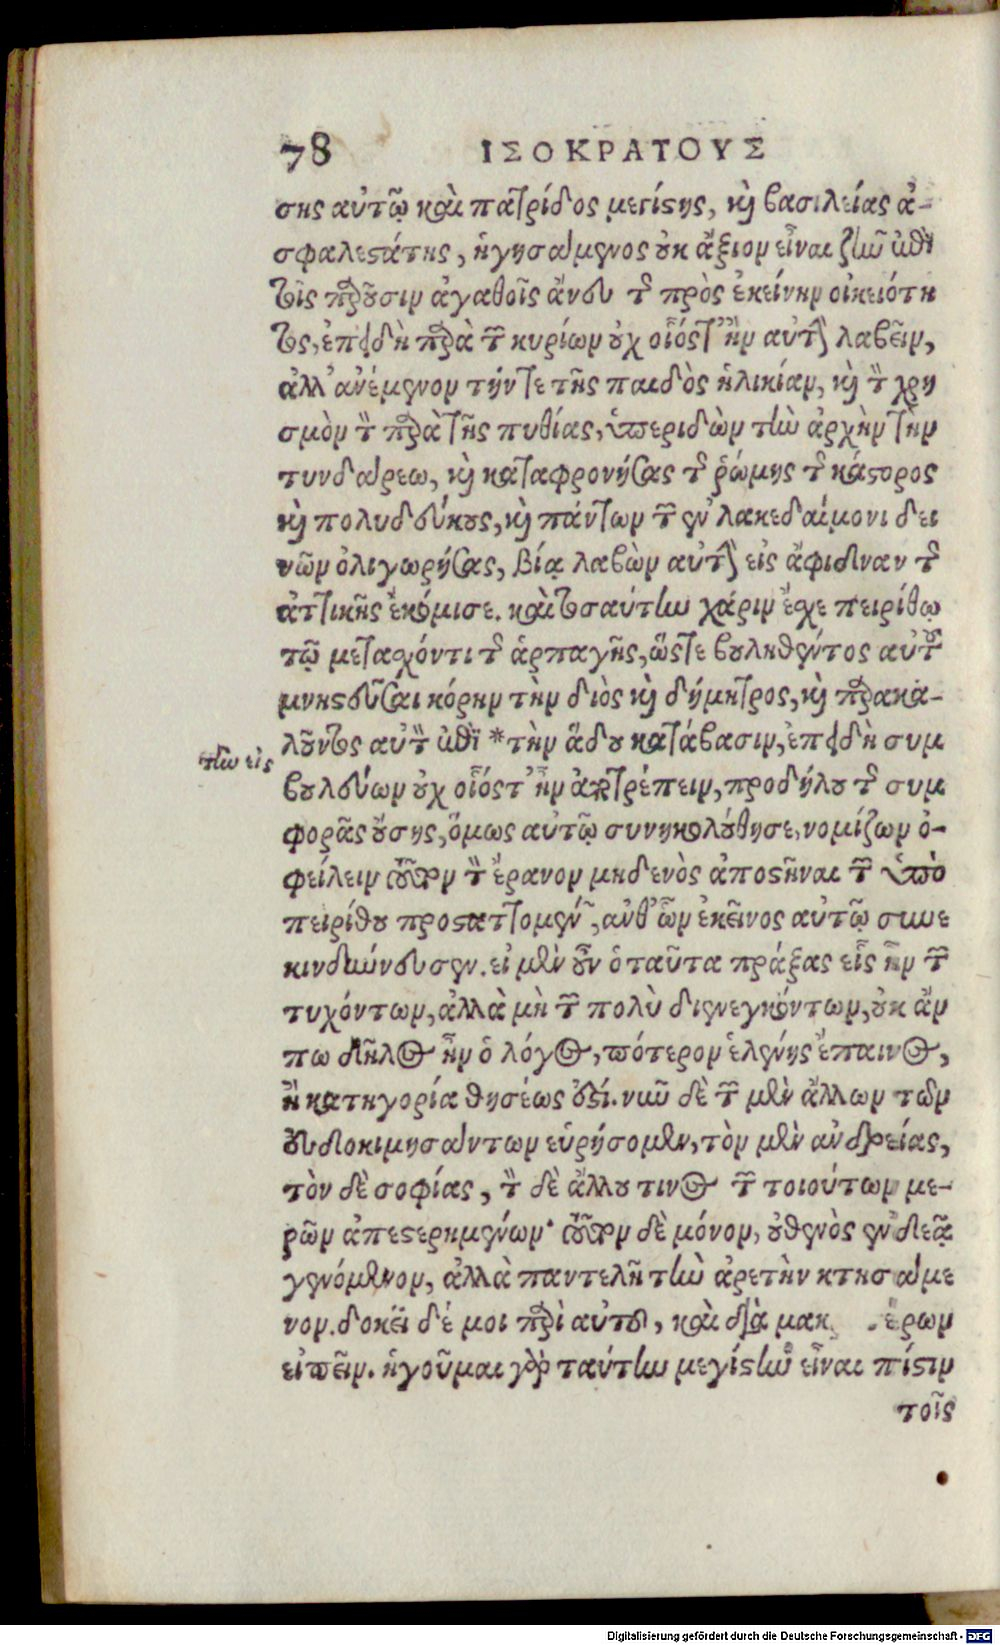 78 ΙΣΟΚΡΑΤΟΥΣ
σης αὐτῷ καὶ πατρίδος μεγίστης, καὶ βασιλείας ἀ-
σφαλεστάτης, ἡγησάμενος οὐκ ἄξιον εἶναι ζῆν ἐπὶ
τοῖς παροῦσιν ἀγαθοῖς ἄνευ τῆς πρὸς ἐκείνην οἰκειότη
τος, ἐπειδὴ παρὰ τῶν κυρίων οὐχ οἷόστ' ἦν αὐτὴν λαβεῖν,
ἀλλ' ἀνέμενον τήν τε τῆς παιδὸς ἡλικίαν, καὶ τὸν χρη
σμὸν τὸν παρὰ τῆς πυθίας, ὑπεριδὼν τὴν ἀρχὴν τὴν
τυνδάρεω, καὶ καταφρονήσας τῆς ῥώμης τῆς κάστορος
καὶ πολυδεύκους, καὶ πάντων τῶν ἐν λακεδαίμονι δει
νῶν ὀλιγωρήσας, βίᾳ λαβὼν αὐτὴν εἰς ἄφιδναν τῆς
ἀττικῆς ἐκόμισε. καὶ τοσαύτην χάριν ἔχε πειρίθῳ
τῷ μετασχόντι τῆς ἁρπαγῆς, ὥστε βουληθέντος αὐτοῦ
μνηστεῦσαι κόρην τὴν διὸς καὶ δήμητρος, καὶ παρακα-
λοῦντος αὐτὸν ἐπὶ * τὴν ἅδου κατάβασιν, ἐπειδὴ συμ
τὴν εἰς
βουλεύων οὐχ οἷόστ' ἦν ἀποτρέπειν, προδήλου τῆς συμ
φορᾶς οὔσης, ὅμως αὐτῷ συνηκολούθησε, νομίζων ὀ-
φείλειν τοῦτον τὸν ἔρανον μηδενὸς ἀποστῆναι τῶν ὑπὸ
πειρίθου προσταττομένων, ἀνθ' ὧν ἐκεῖνος αὐτῷ συνε
κινδύνευσεν. εἰ μὲν οὖν ὁ ταῦτα πράξας εἷς ἦν τῶν
τυχόντων, ἀλλὰ μὴ τῶν πολὺ διενεγκόντων, οὐκ ἄν
πω δῆλος ἦν ὁ λόγος, πότερον ἑλένης ἔπαινος,
ἢ κατηγορία θησέως ἐστί. νῦν δὲ τῶν μὲν ἄλλων τῶν
εὐδοκιμησάντων εὑρήσομεν, τὸν μὲν ἀνδρείας,
τὸν δὲ σοφίας, τὸν δὲ ἄλλου τινὸς τῶν τοιούτων με-
ρῶν ἀπεστερημένων· τοῦτον δὲ μόνον, οὐθενὸς ἐνδεᾶ
γενόμενον, ἀλλὰ παντελῆ τὴν ἀρετὴν κτησάμε
νον. δοκεῖ δέ μοι περὶ αὐτοῦ, καὶ διὰ μακ έρων
εἰπεῖν. ἡγοῦμαι γὰρ ταύτην μεγίστην εἶναι πίστιν
τοῖς
Digitalisierung gefördert durch die Deutsche Forschungsgemeinschaft - DFG